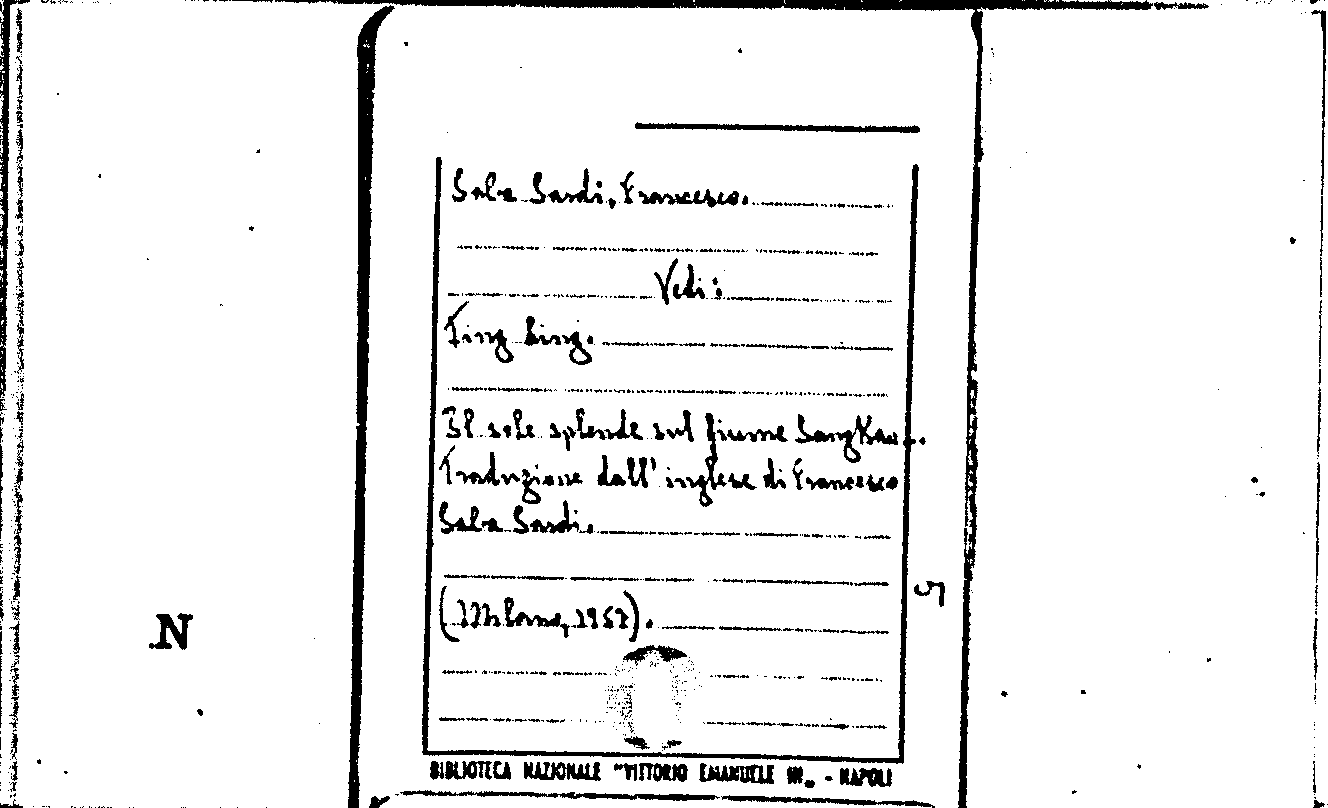 Saba Sardi, Francesco.
Vedi:
Ting Ling.
Il sole splende sul fiume Sangkan...
Traduzione dall'inglese di Francesco
Saba Sardi.
5
(Milano,
N
BIBLIOTECA NAZIONALE "VITTORIO EMANUELE III„ - NAPOLI